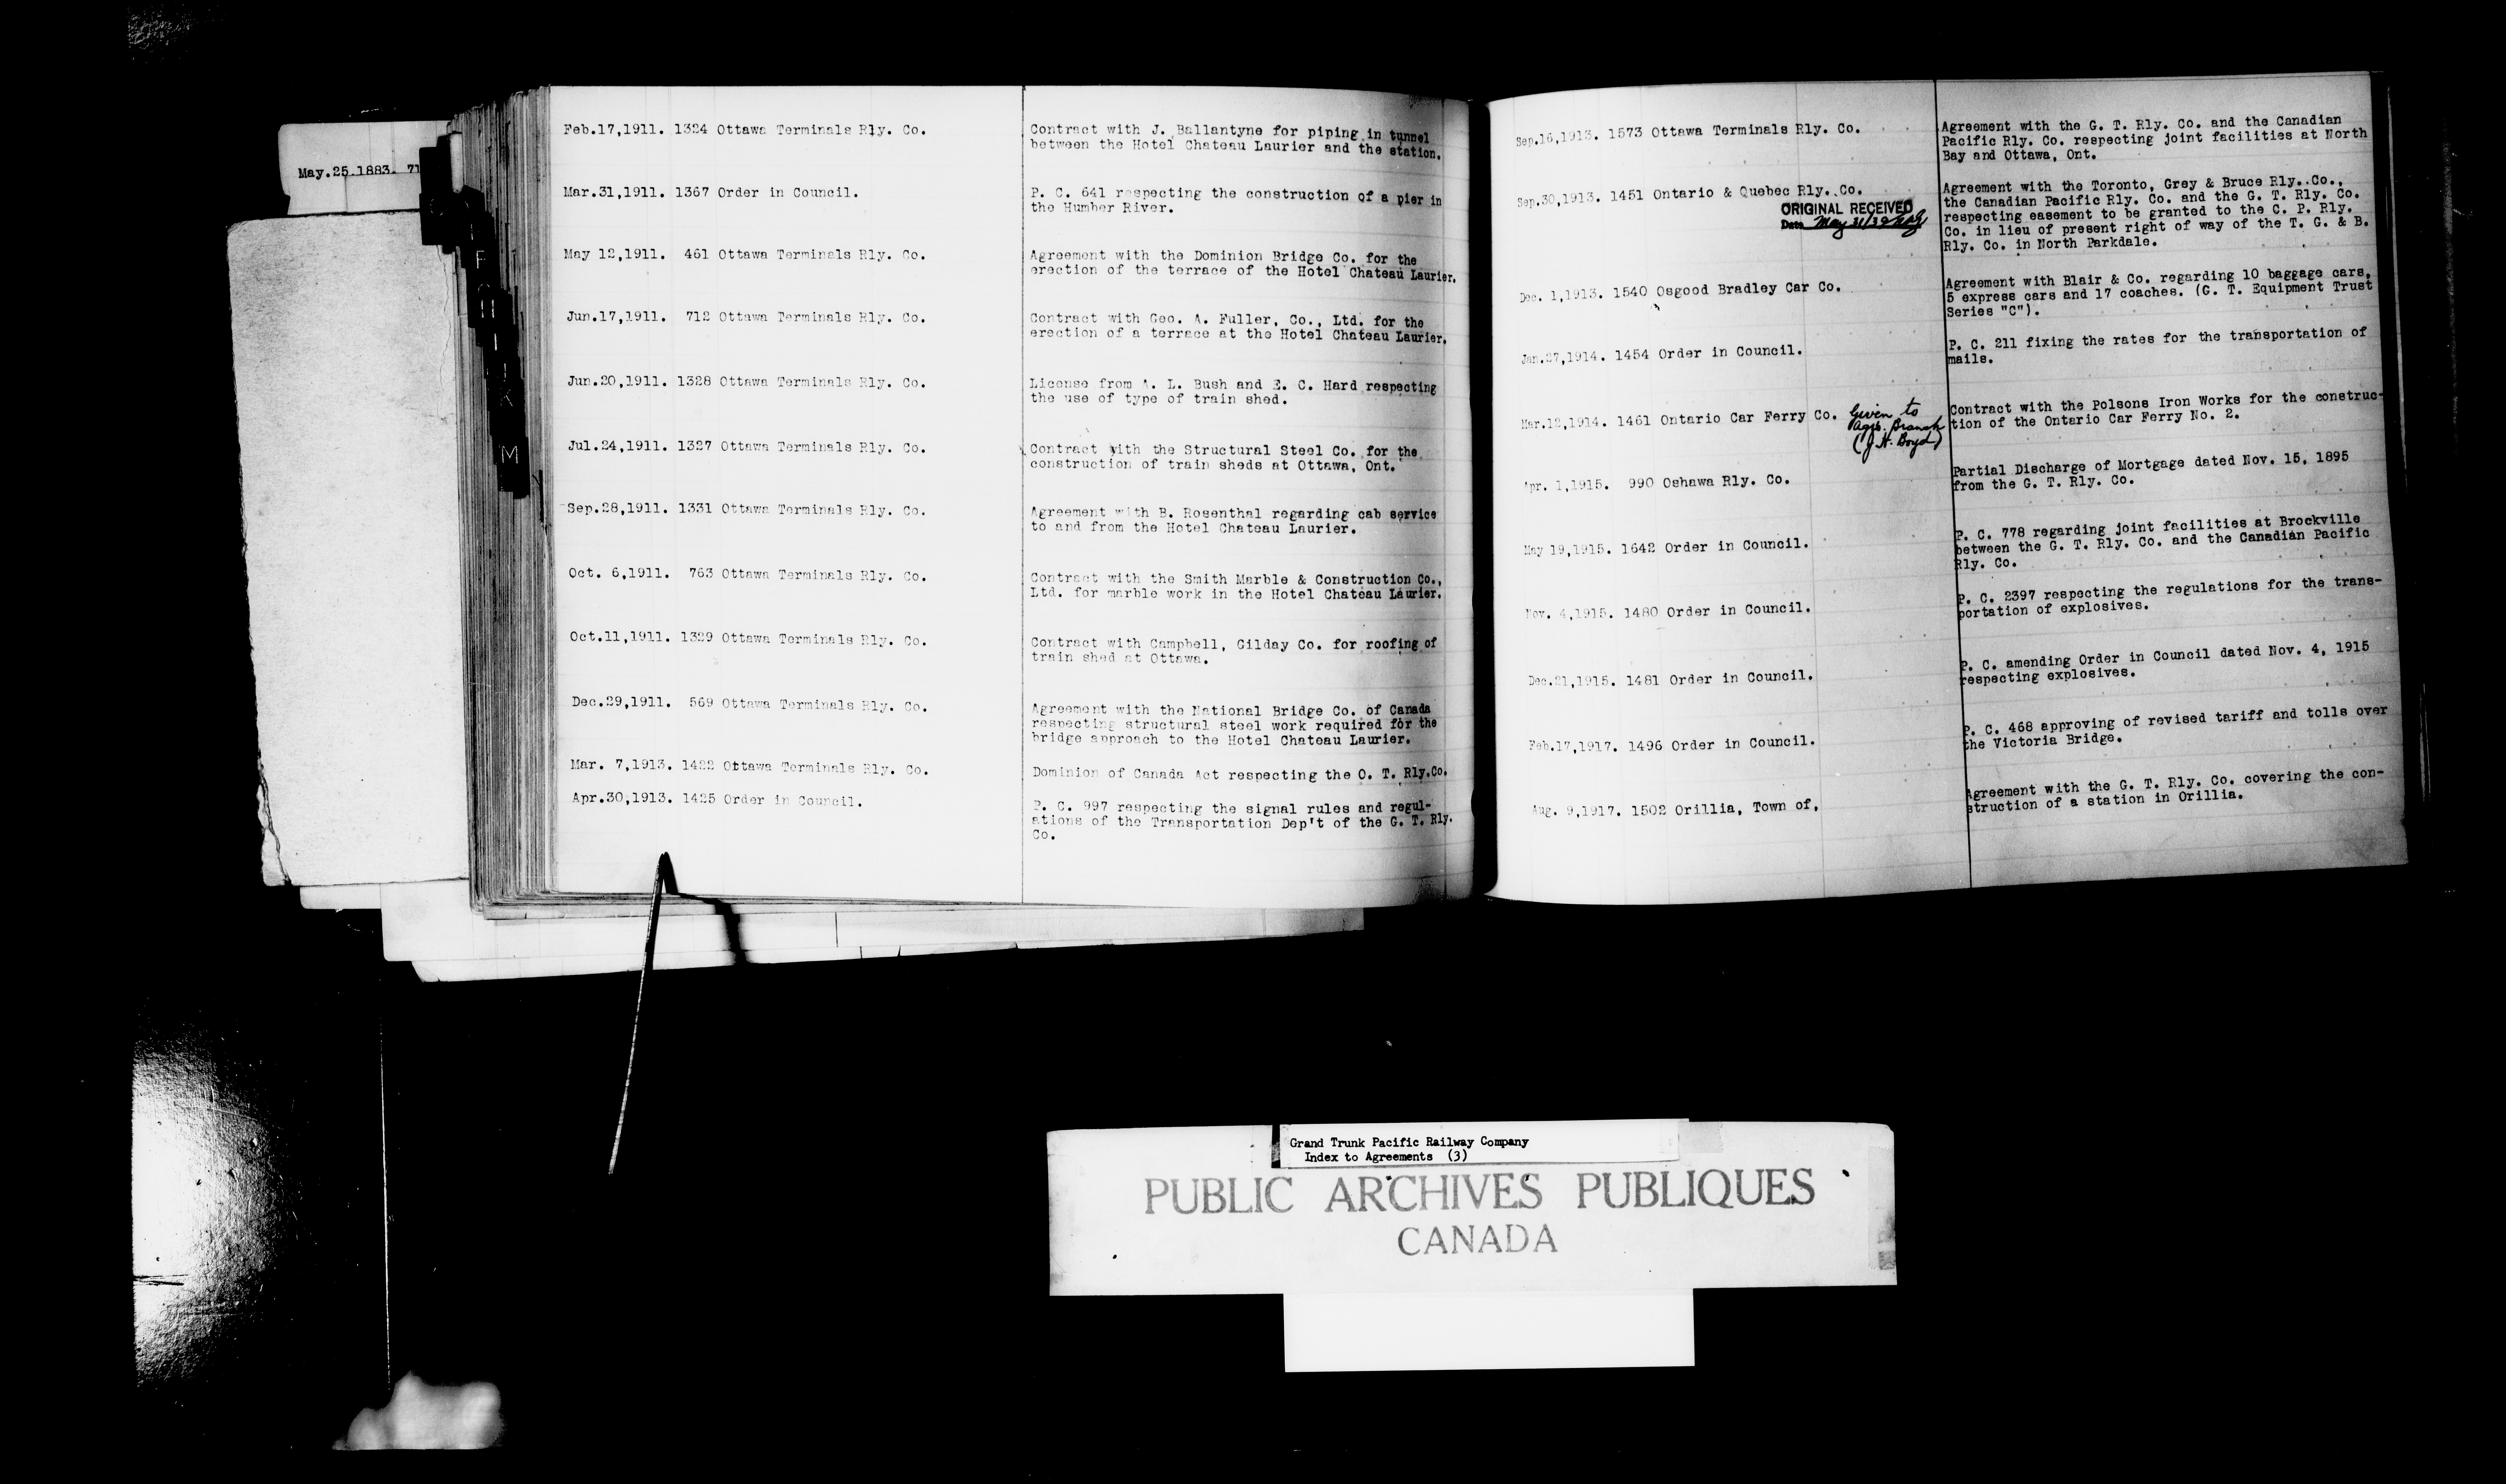 May.25.1883. 71
F
H
I
K
M
Feb.17,1911. 1324 Ottawa Terminals Rly. Co.
Contract with J. Ballantyne for piping in tunnel
between the Hotel Chateau Laurier and the station.
Mar.31,1911. 1367 Order in Council.
P. C. 641 respecting the construction of a pier in
the Humber River.
May 12,1911. 461 Ottawa Terminals Rly. Co.
Agreement with the Dominion Bridge Co. for the
erection of the terrace of the Hotel Chateau Laurier.
Jun.17,1911. 712 Ottawa Terminals Rly. Co.
Contract with Geo. A. Fuller, Co., Ltd. for the
erection of a terrace at the Hotel Chateau Laurier.
Jun.20,1911. 1328 Ottawa Terminals Rly. Co.
License from A. L. Bush and E. C. Hard respecting
the use of type of train shed.
Jul.24,1911. 1327 Ottawa Terminals Rly. Co.
Contract with the Structural Steel Co. for the
construction of train sheds at Ottawa, Ont.
Sep.28,1911. 1331 Ottawa Terminals Rly. Co.
Agreement with B. Rosenthal regarding cab service
to and from the Hotel Chateau Laurier.
Oct. 6,1911. 763 Ottawa Terminals Rly. Co.
Contract with the Smith Marble & Construction Co.,
Ltd. for marble work in the Hotel Chateau Laurier.
Oct.11,1911. 1329 Ottawa Terminals Rly. Co.
Contract with Campbell, Gilday Co. for roofing of
train shed at Ottawa.
Dec.29,1911. 569 Ottawa Terminals Rly. Co.
Agreement with the National Bridge Co. of Canada
respecting structural steel work required for the
bridge approach to the Hotel Chateau Laurier.
Mar. 7,1913. 1422 Ottawa Terminals Rly. Co.
Dominion of Canada Act respecting the O. T. Rly.Co.
Apr.30,1913. 1425 Order in Council.
P. C. 997 respecting the signal rules and regul-
ations of the Transportation Dep't of the G. T. Rly.
Co.
Sep.16,1913. 1573 Ottawa Terminals Rly. Co.
Agreement with the G. T. Rly. Co. and the Canadian
Pacific Rly. Co. respecting joint facilities at North
Bay and Ottawa, Ont.
Sep.30,1913. 1451 Ontario & Quebec Rly. Co.
ORIGINAL RECEIVED
Date May 31/39
Agreement with the Toronto, Grey & Bruce Rly. Co.,
the Canadian Pacific Rly. Co. and the G. T. Rly. Co.
respecting easement to be granted to the C. P. Rly.
Co. in lieu of present right of way of the T. G. & B.
Rly. Co. in North Parkdale.
Dec. 1,1913. 1540 Osgood Bradley Car Co.
Agreement with Blair & Co. regarding 10 baggage cars,
5 express cars and 17 coaches. (G. T. Equipment Trust
Series "C").
Jan.27,1914. 1454 Order in Council.
P. C. 211 fixing the rates for the transportation of
mails.
Mar.12,1914. 1461 Ontario Car Ferry Co.
Given to
Agrs. Branch
(J. H. Boyd)
Contract with the Polsons Iron Works for the construc-
tion of the Ontario Car Ferry No. 2.
Apr. 1,1915. 990 Oshawa Rly. Co.
Partial Discharge of Mortgage dated Nov. 15, 1895
from the G. T. Rly. Co.
May 19,1915. 1642 Order in Council.
P. C. 778 regarding joint facilities at Brockville
between the G. T. Rly. Co. and the Canadian Pacific
Rly. Co.
Nov. 4,1915. 1480 Order in Council.
P. C. 2397 respecting the regulations for the trans-
portation of explosives.
Dec.21,1915. 1481 Order in Council.
P. C. amending Order in Council dated Nov. 4, 1915
respecting explosives.
Feb.17,1917. 1496 Order in Council.
P. C. 468 approving of revised tariff and tolls over
the Victoria Bridge.
Aug. 9,1917. 1502 Orillia, Town of,
Agreement with the G. T. Rly. Co. covering the con-
struction of a station in Orillia.
Grand Trunk Pacific Railway Company
Index to Agreements (3)
PUBLIC ARCHIVES PUBLIQUES
CANADA